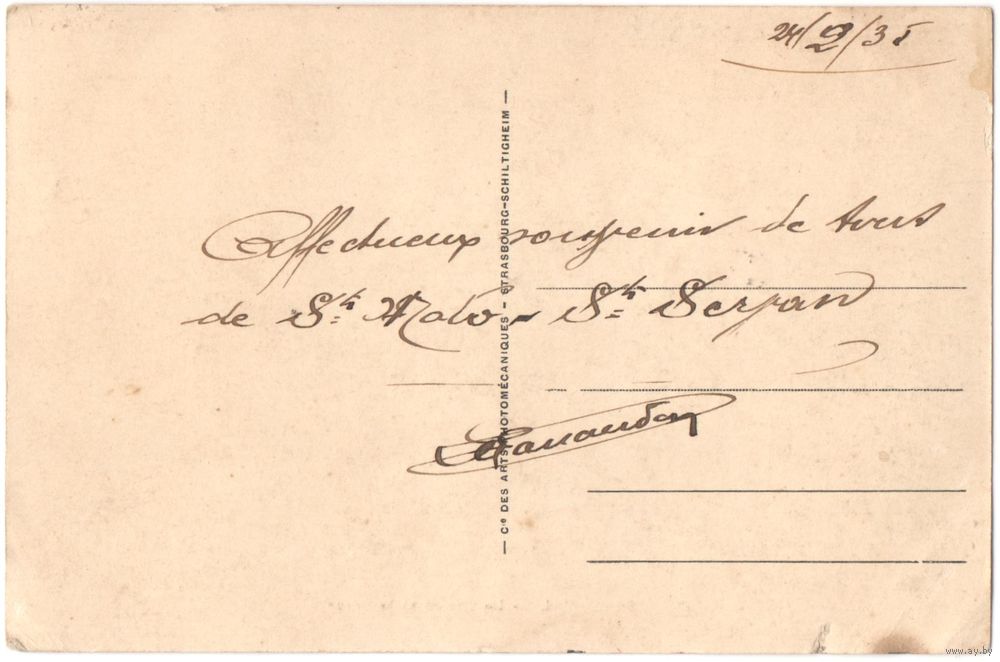 24/2/35
Affectueux souvenir de tous
de St. Malo - St Servan
— Cie DES ARTS PHOTOMÉCANIQUES - STRASBOURG-SCHILTIGHEIM —
www.ay.by